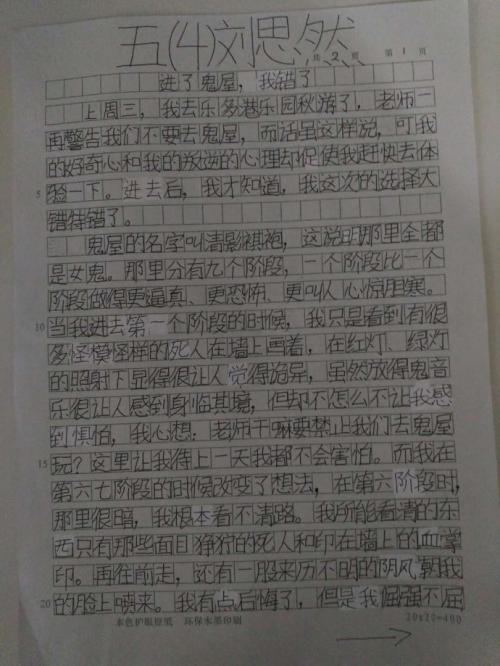 五(4)刘思然
共 2 页 第 1 页
进了鬼屋，我错了
上周三，我去乐多港乐园秋游了，老师一
再警告我们不要去鬼屋，而话里这样说，可我
的好奇心和我的叛逆的心理却促使我赶快去体
5 验一下。进去后，我才知道，我这次的选择大
错特错了。
鬼屋的名字叫清影祺袍，这说明那里全都
是女鬼。那里分有九个阶段，一个阶段比一个
阶段做得更逼真、更恐怖、更叫人心惊胆寒。
10 当我进去第一个阶段的时候，我只是看到有很
多怪模怪样的死人在墙上画着，在红灯、绿灯
的照射下显得很让人觉得诡异，虽然放得鬼音
乐很让人感到身临其境，但却不怎么不让我感
到惧怕，我心想：老师干嘛要禁止我们去鬼屋
15 玩？这里让我待上一天我都不会害怕。而我在
第六七阶段的时候改变了想法，在第六阶段时，
那里很暗，我根本看不清路。我所能看清的东
西只有那些面目狰狞的死人和印在墙上的血掌
印。再往前走，还有一股来历不明的阴风朝我
20 的脸上喷来。我有点后悔了，但是我倔强不屈
本色护眼原纸 环保水墨印刷 20x20=400